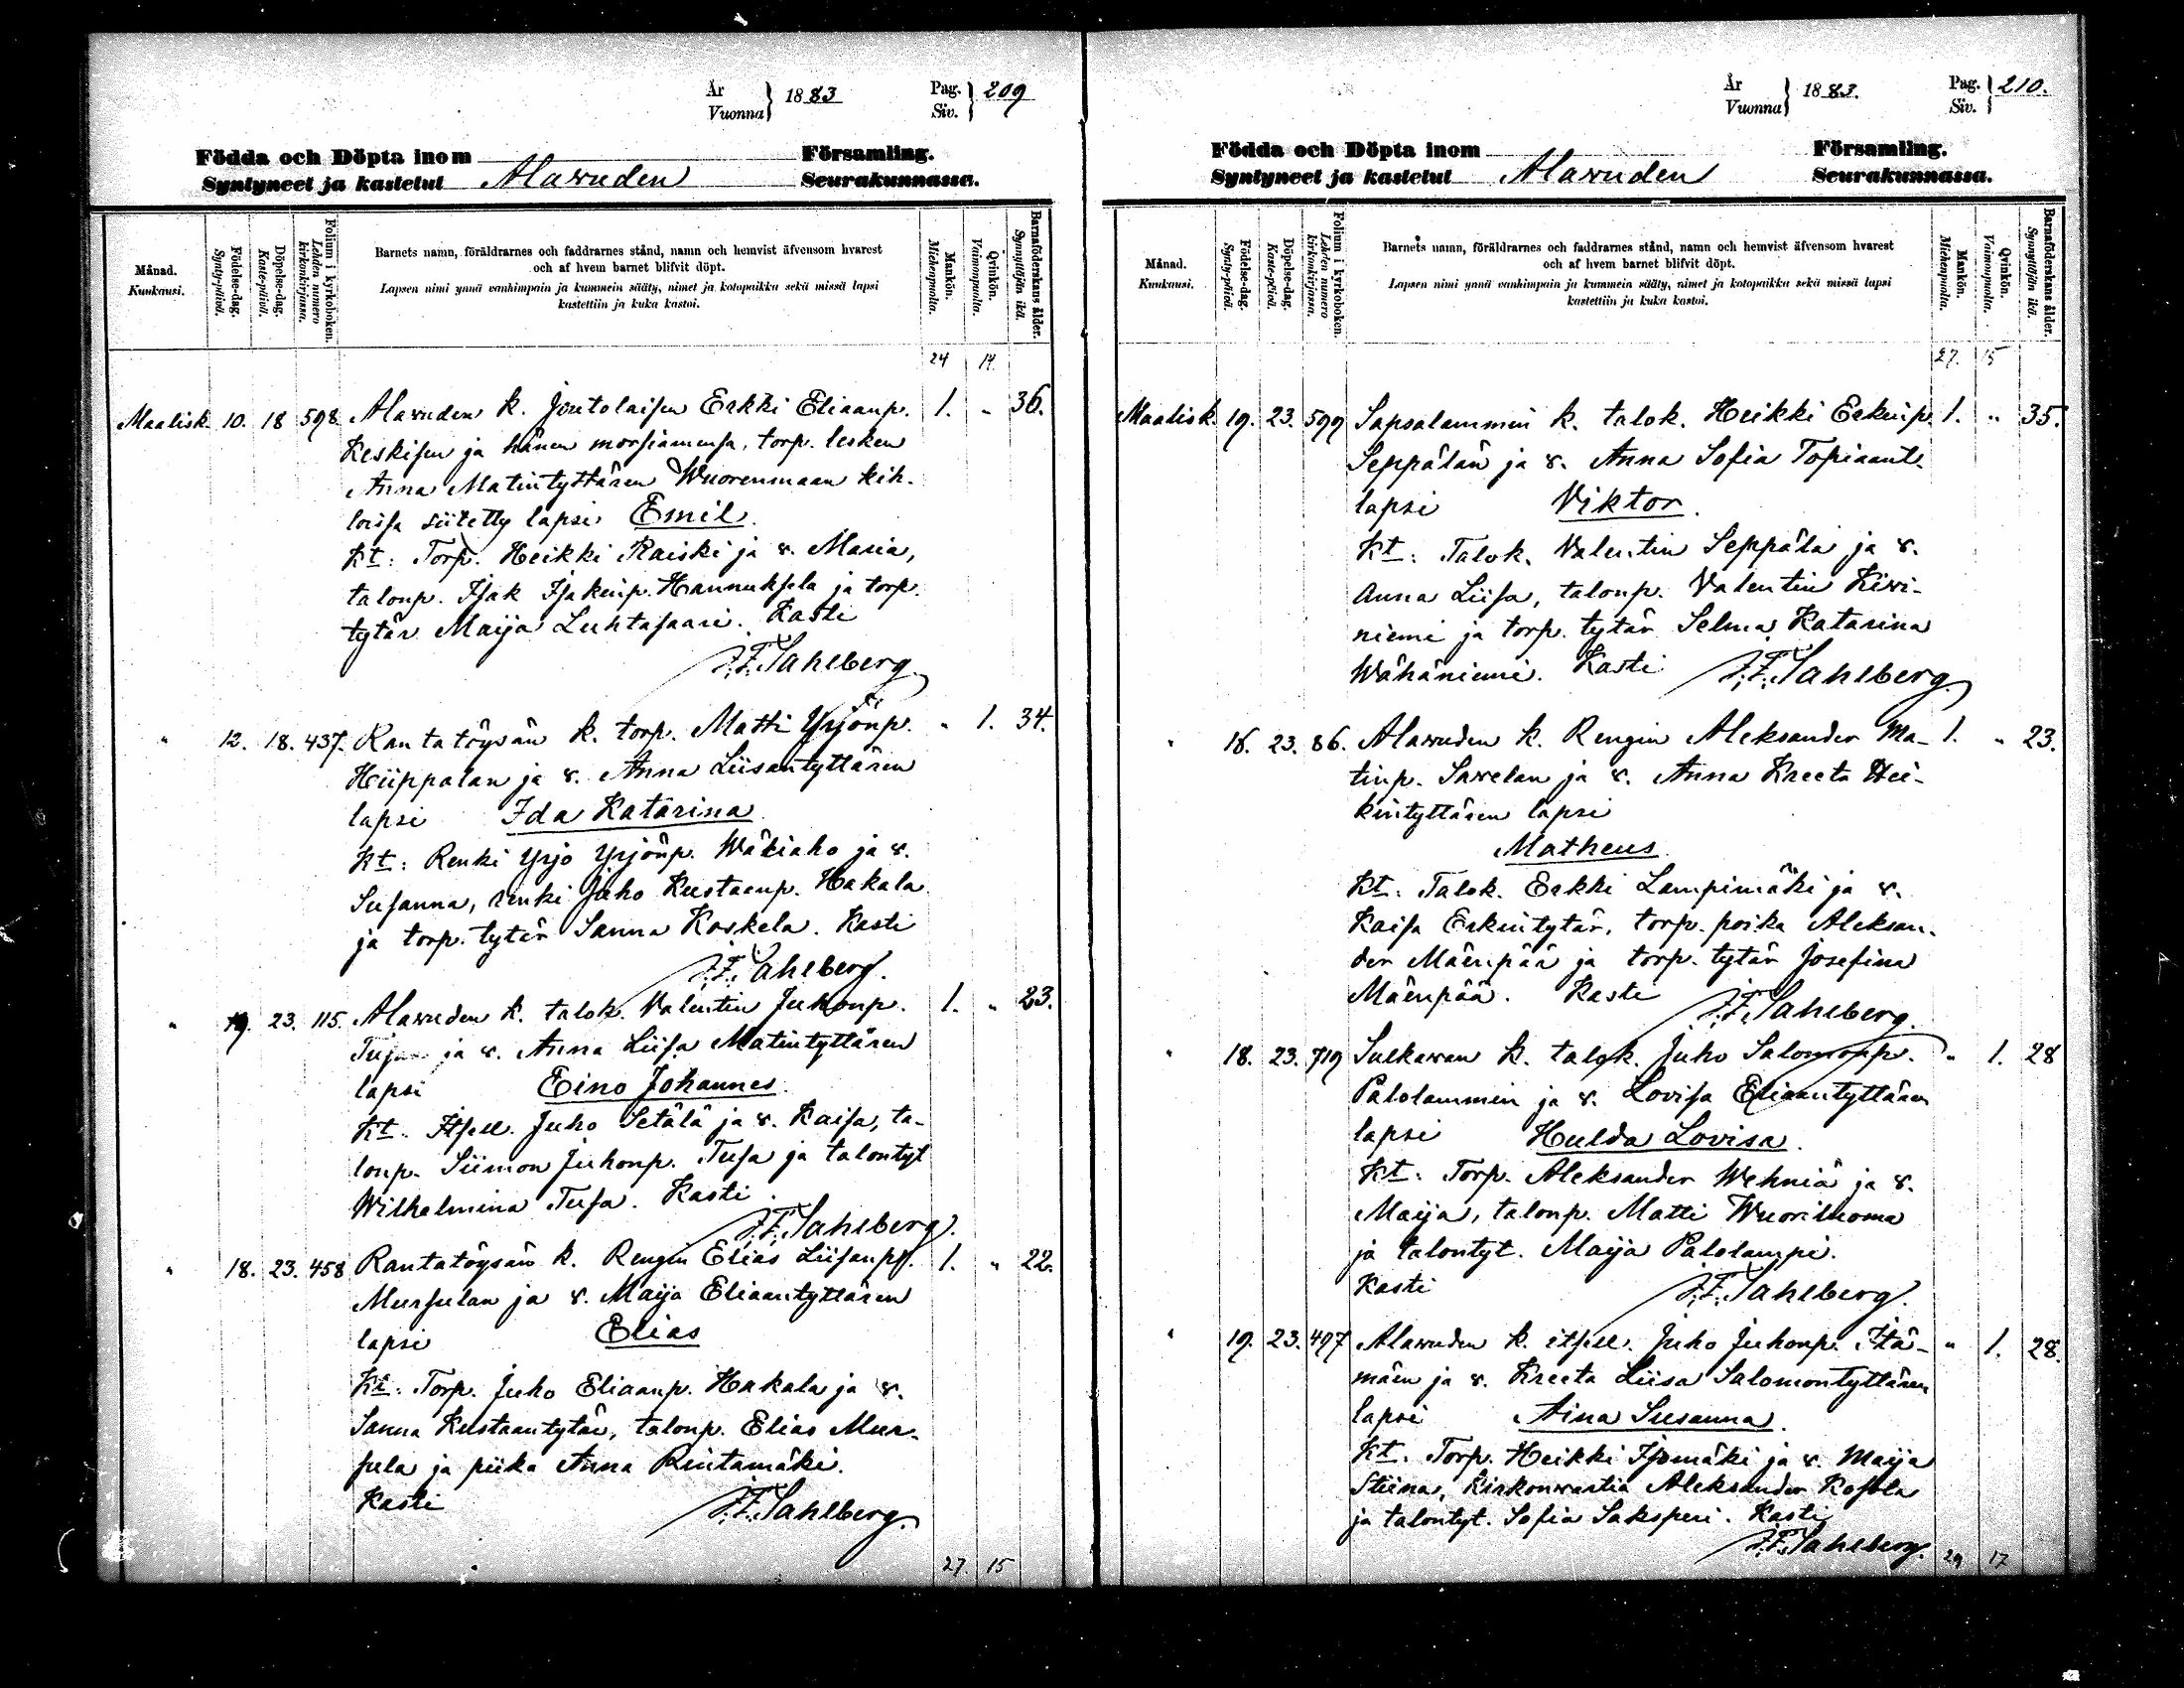 År
Vuonna
1883
Pag.
Siv.
209
Födda och Döpta inom
Församling.
Syntyneet ja kastetut Alavuden Seurakunnassa.
Månad.
Kuukausi.
Födelse-dag.
Synty-päivä.
Döpelse-dag.
Kaste-päivä.
Folium i kyrkoboken.
Lehden numero
kirkonkirjassa.
Barnets namn, föräldrarnes och faddrarnes stånd, namn och hemvist äfvensom hvarest
och af hvem barnet blifvit döpt.
Lapsen nimi ynnä vanhimpain ja kummein sääty, nimet ja kotopaikka sekä missä lapsi
kastettiin ja kuka kastoi.
Mankön.
Miehenpuolta.
Qvinkön.
Vaimonpuolta.
Barnaföderskans ålder.
Synnyttäjän ikä.
24 14
Maalisk. 10. 18 598 Alavuden k. Joutolaisen Erkki Eliaanp. 1. „ 36.
Keskisen ja hänen morsiamensa, torp. lesken
Anna Matintyttären Wuorenmaan kih-
loissa siitetty lapsi Emil.
Kt: Torp. Heikki Raiski ja v. Maria,
talonp. Isak Isakinp. Hannuksela ja torp.
tytär Maija Luhtasaari. Kasti
J.F. Sahlberg.
„ 12. 18. 437. Rantatöysän k. torp. Matti Yrjönp. „ 1. 34.
Hiippalan ja v. Anna Liisantyttären
lapsi Ida Katarina
Kt: Renki Yrjö Yrjönp. Wäliaho ja v.
Susanna, renki Juho Kustaanp. Hakala
ja torp. tytär Sanna Koskela. Kasti
J.F. Sahlberg.
„ 19. 23. 115. Alavuden k. talok. Valentin Juhonp. 1. „ 23.
ja v. Anna Liisa Matintyttären
lapsi Eino Johannes.
Kt: Itsell. Juho Setälä ja v. Kaisa, ta-
lonp. Siimon Juhonp. Tusa ja talontyt
Wilhelmina Tusa. Kasti.
J.F. Sahlberg.
„ 18. 23. 458 Rantatöysän k. Rengin Elias Liisanp. 1. „ 22.
Mursulan ja v. Maija Eliaantyttären
lapsi Elias
Kt: Torp. Juho Eliaanp. Hakala ja v.
Sanna Kustaantytär, talonp. Elias Mur-
sula ja piika Anna Rintamäki.
Kasti J.F. Sahlberg.
27. 15
År
Vuonna
1883.
Pag.
Siv.
210.
Födda och Döpta inom
Församling.
Syntyneet ja kastetut Alavuden Seurakunnassa.
Månad.
Kuukausi.
Födelse-dag.
Synty-päivä.
Döpelse-dag.
Kaste-päivä.
Folium i kyrkoboken.
Lehden numero
kirkonkirjassa.
Barnets namn, föräldrarnes och faddrarnes stånd, namn och hemvist äfvensom hvarest
och af hvem barnet blifvit döpt.
Lapsen nimi ynnä vanhimpain ja kummein sääty, nimet ja kotopaikka sekä missä lapsi
kastettiin ja kuka kastoi.
Mankön.
Miehenpuolta.
Qvinkön.
Vaimonpuolta.
Barnaföderskans ålder.
Synnyttäjän ikä.
27. 15
Maalisk. 19. 23. 599 Sapsalammin k. talok. Heikki Erkinp. 1. „ 35.
Seppälän ja v. Anna Sofia Topiaant.
lapsi Viktor.
Kt: Talok. Valentin Seppälä ja v.
Anna Liisa, talonp. Valentin Kivi-
niemi ja torp. tytär Selma Katarina
Wähäniemi. Kasti J.F. Sahlberg.
„ 18. 23. 86. Alavuden k. Rengin Aleksander Ma- 1. „ 23.
tinp. Savelan ja v. Anna Kreeta Hei-
kintyttären lapsi
Matheus.
Kt: Talok. Erkki Lampimäki ja v.
Kaisa Erkintytär, torp. poika Aleksan-
der Mäenpää ja torp. tytär Josefina
Mäenpää. Kasti J.F. Sahlberg.
„ 18. 23. 719 Sulkavan k. talok. Juho Salomonp. „ 1. 28
Palolammin ja v. Lovisa Eliaantyttären
lapsi Hulda Lovisa.
Kt: Torp. Aleksander Wehniä ja v.
Maija, talonp. Matti Wuoriluoma
ja talontyt. Maija Palolampi.
Kasti J.F. Sahlberg.
„ 19. 23. 497 Alavuden k. itsell. Juho Juhonp. Itä- „ 1. 28.
mäen ja v. Kreeta Liisa Salomontyttären
lapsi Aina Susanna.
Kt. Torp. Heikki Isomäki ja v. Maija
Stiina, kirkonvartia Aleksander Kosola
ja talontyt. Sofia Saksperi. Kasti
J.F. Sahlberg.
29 17